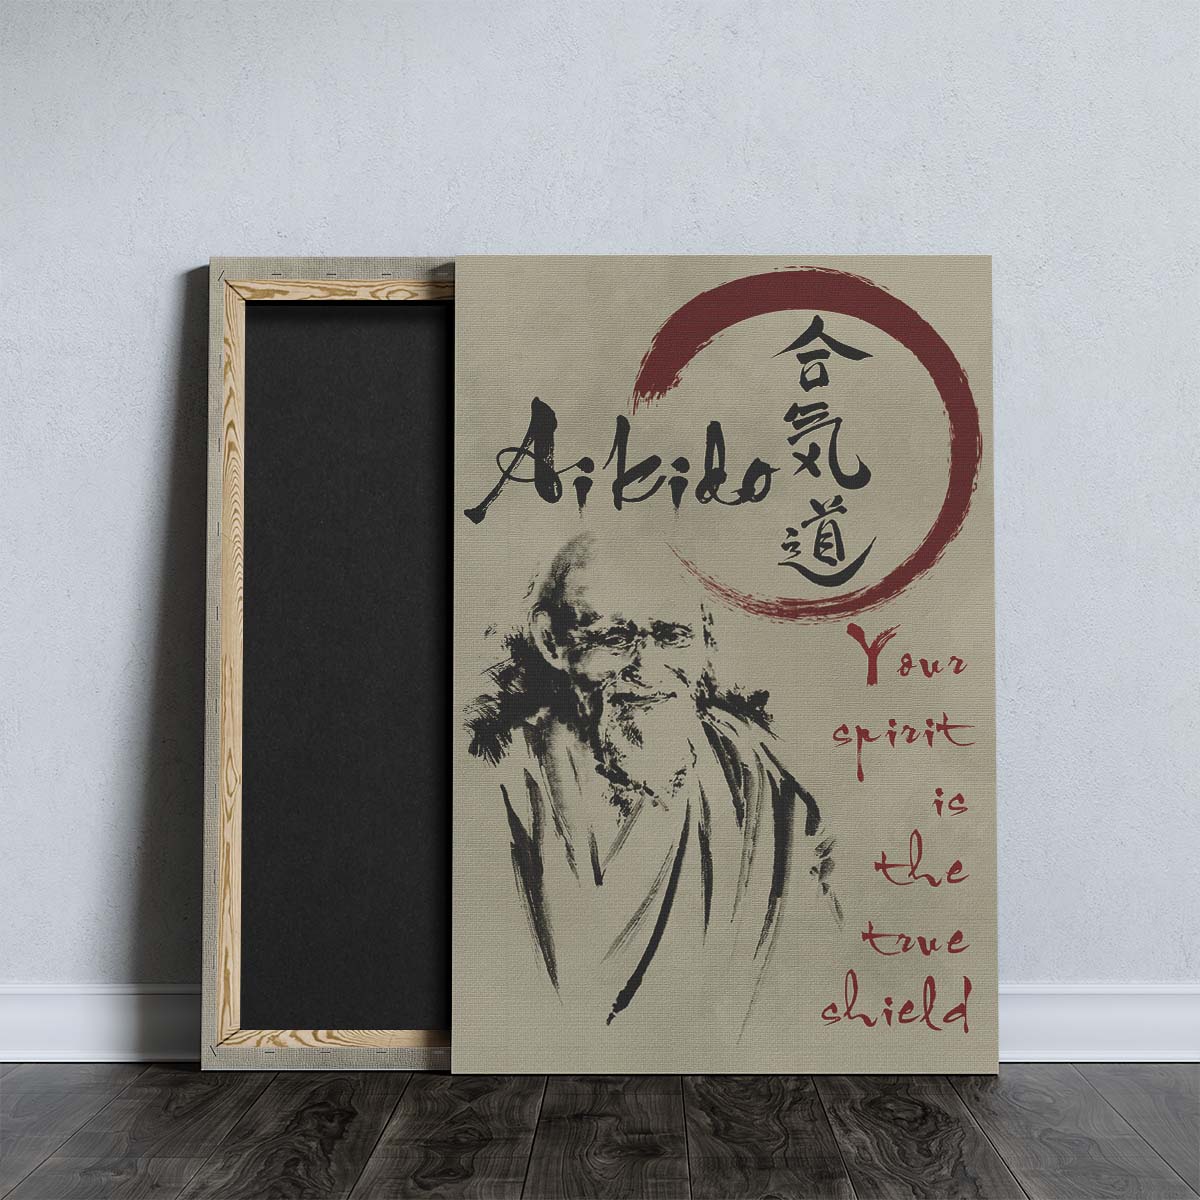 合気道
Aikido
Your
spirit
is
the
true
shield